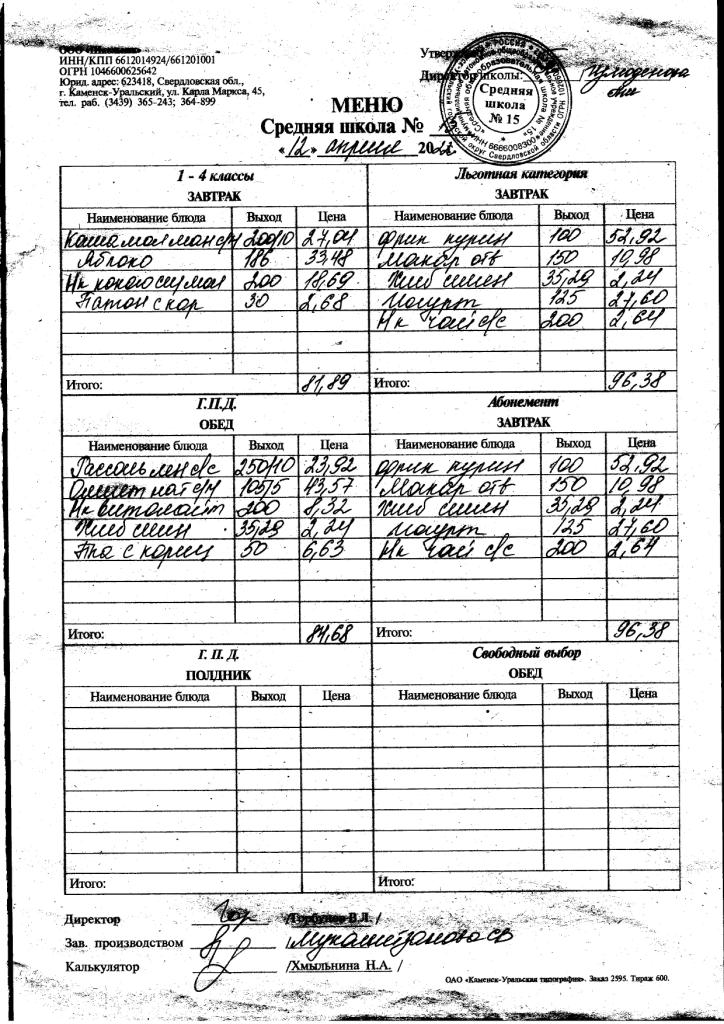 ИНН/КПП 6612014924/661201001
ОГРН 1046600625642
Юрид. адрес: 623418, Свердловская обл.,
г. Каменск-Уральский, ул. Карла Маркса, 45,
тел. раб. (3439) 365-243; 364-899
Директор школы:
Средняя
школа
№ 15
МЕНЮ
Средняя школа №
«12» апреля
1 - 4 классы
ЗАВТРАК
Наименование блюда Выход Цена
200/10 27,04
Яблоко 186 33,48
200 18,69
30 2,68
Итого: 81,89
Льготная категория
ЗАВТРАК
Наименование блюда Выход Цена
курин 100 52,92
Макар отв 150 10,98
Хлеб 35,29 2,24
Йогурт 125 27,60
Нк чай с/с 200 2,64
Итого: 96,38
Г.П.Д.
ОБЕД
Наименование блюда Выход Цена
Рассольн лен с/с 250/10 23,92
Омлет нат 105/5 43,57
Нк витомолт 200 8,32
Хлеб 35,29 2,24
с кориц 50 6,63
Итого: 84,68
Абонемент
ЗАВТРАК
Наименование блюда Выход Цена
курин 100 52,92
Макар отв 150 10,98
Хлеб 35,29 2,24
Йогурт 125 27,60
Нк чай с/с 200 2,64
Итого: 96,38
Г. П. Д.
ПОЛДНИК
Наименование блюда Выход Цена
Итого:
Свободный выбор
ОБЕД
Наименование блюда Выход Цена
Итого:
Директор
Зав. производством
Калькулятор /Хмыльнина Н.А. /
ОАО «Каменск-Уральская типография». Заказ 2595. Тираж 600.